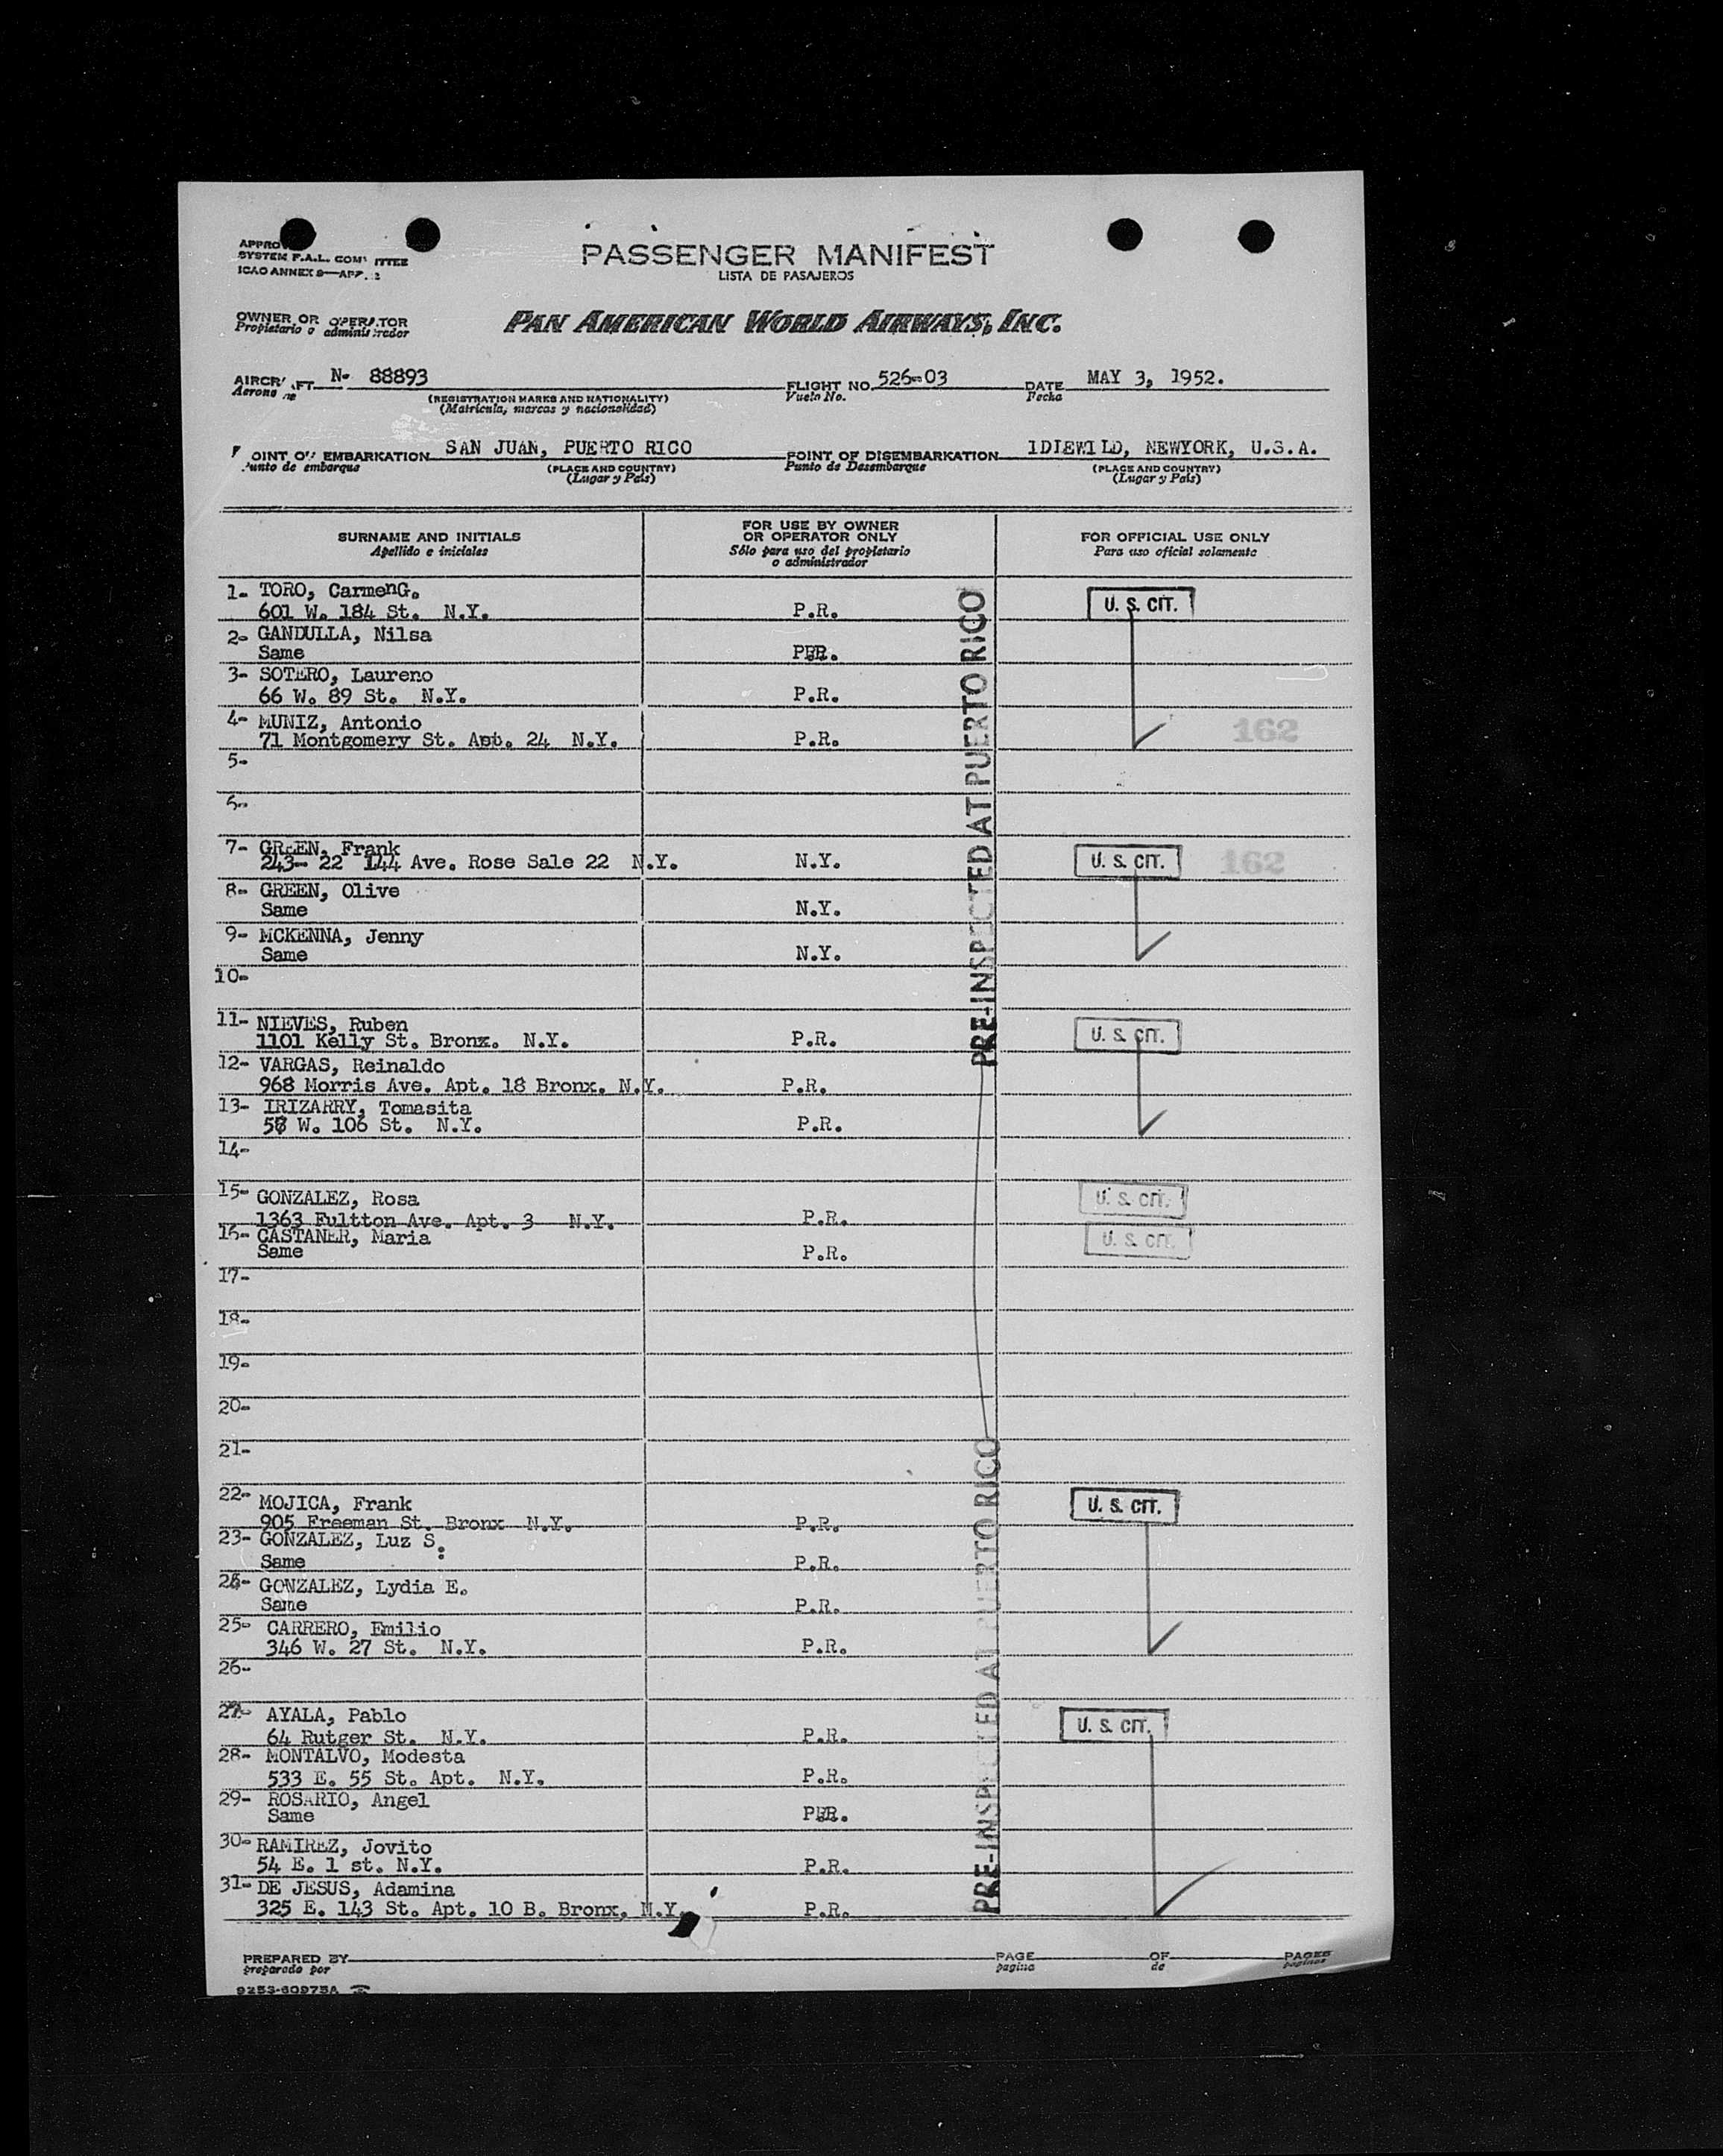 PASSENGER MANIFEST
LISTA DE PASAJEROS
APPRO
SYSTEM F.A.L. COM ITTEE
ICAO ANNEX 9—APP. 2
OWNER OR OPERATOR
Propietario o administrador
PAN AMERICAN WORLD AIRWAYS, INC.
AIRCRAFT N- 88893 FLIGHT NO. 526-03 DATE MAY 3, 1952.
Aerona ve (REGISTRATION MARKS AND NATIONALITY) Vuelo No. Fecha
(Matrícula, marcas y nacionalidad)
POINT OF EMBARKATION SAN JUAN, PUERTO RICO POINT OF DISEMBARKATION IDIEWILD, NEWYORK, U.S.A.
Punto de embarque (PLACE AND COUNTRY) Punto de Desembarque (PLACE AND COUNTRY)
(Lugar y País) (Lugar y País)
SURNAME AND INITIALS FOR USE BY OWNER OR OPERATOR ONLY FOR OFFICIAL USE ONLY
Apellido e iniciales Sólo para uso del propietario o administrador Para uso oficial solamente
1- TORO, CarmenG.
601 W. 184 St. N.Y. P.R. U. S. CIT.
2- GANDULLA, Nilsa
Same P.R.
3- SOTERO, Laureno
66 W. 89 St. N.Y. P.R.
4- MUNIZ, Antonio
71 Montgomery St. Apt. 24 N.Y. P.R. 162
5-
6-
7- GREEN, Frank
243- 22 144 Ave. Rose Sale 22 N.Y. N.Y. U. S. CIT. 162
8- GREEN, Olive
Same N.Y.
9- MCKENNA, Jenny
Same N.Y.
10-
11- NIEVES, Ruben
1101 Kelly St. Bronx. N.Y. P.R. U. S. CIT.
12- VARGAS, Reinaldo
968 Morris Ave. Apt. 18 Bronx. N.Y. P.R.
13- IRIZARRY, Tomasita
W. 106 St. N.Y. P.R.
14-
15- GONZALEZ, Rosa U. S. CIT.
1363 Fultton Ave. Apt. 3 N.Y. P.R.
16- CASTANER, Maria U. S. CIT.
Same P.R.
17-
18-
19-
20-
21-
22- MOJICA, Frank U. S. CIT.
905 Freeman St. Bronx N.Y. P.R.
23- GONZALEZ, Luz S.
Same P.R.
24- GONZALEZ, Lydia E.
Same P.R.
25- CARRERO, Emilio
346 W. 27 St. N.Y. P.R.
26-
27- AYALA, Pablo U. S. CIT.
64 Rutger St. N.Y. P.R.
28- MONTALVO, Modesta
533 E. 55 St. Apt. N.Y. P.R.
29- ROSARIO, Angel
Same P.R.
30- RAMIREZ, Jovito
54 E. 1 st. N.Y. P.R.
31- DE JESUS, Adamina
325 E. 143 St. Apt. 10 B. Bronx, N.Y. P.R.
PRE-INSPECTED AT PUERTO RICO
PRE-INSPECTED AT PUERTO RICO
PREPARED BY PAGE OF PAGES
preparado por pagina de paginas
9253-60975A